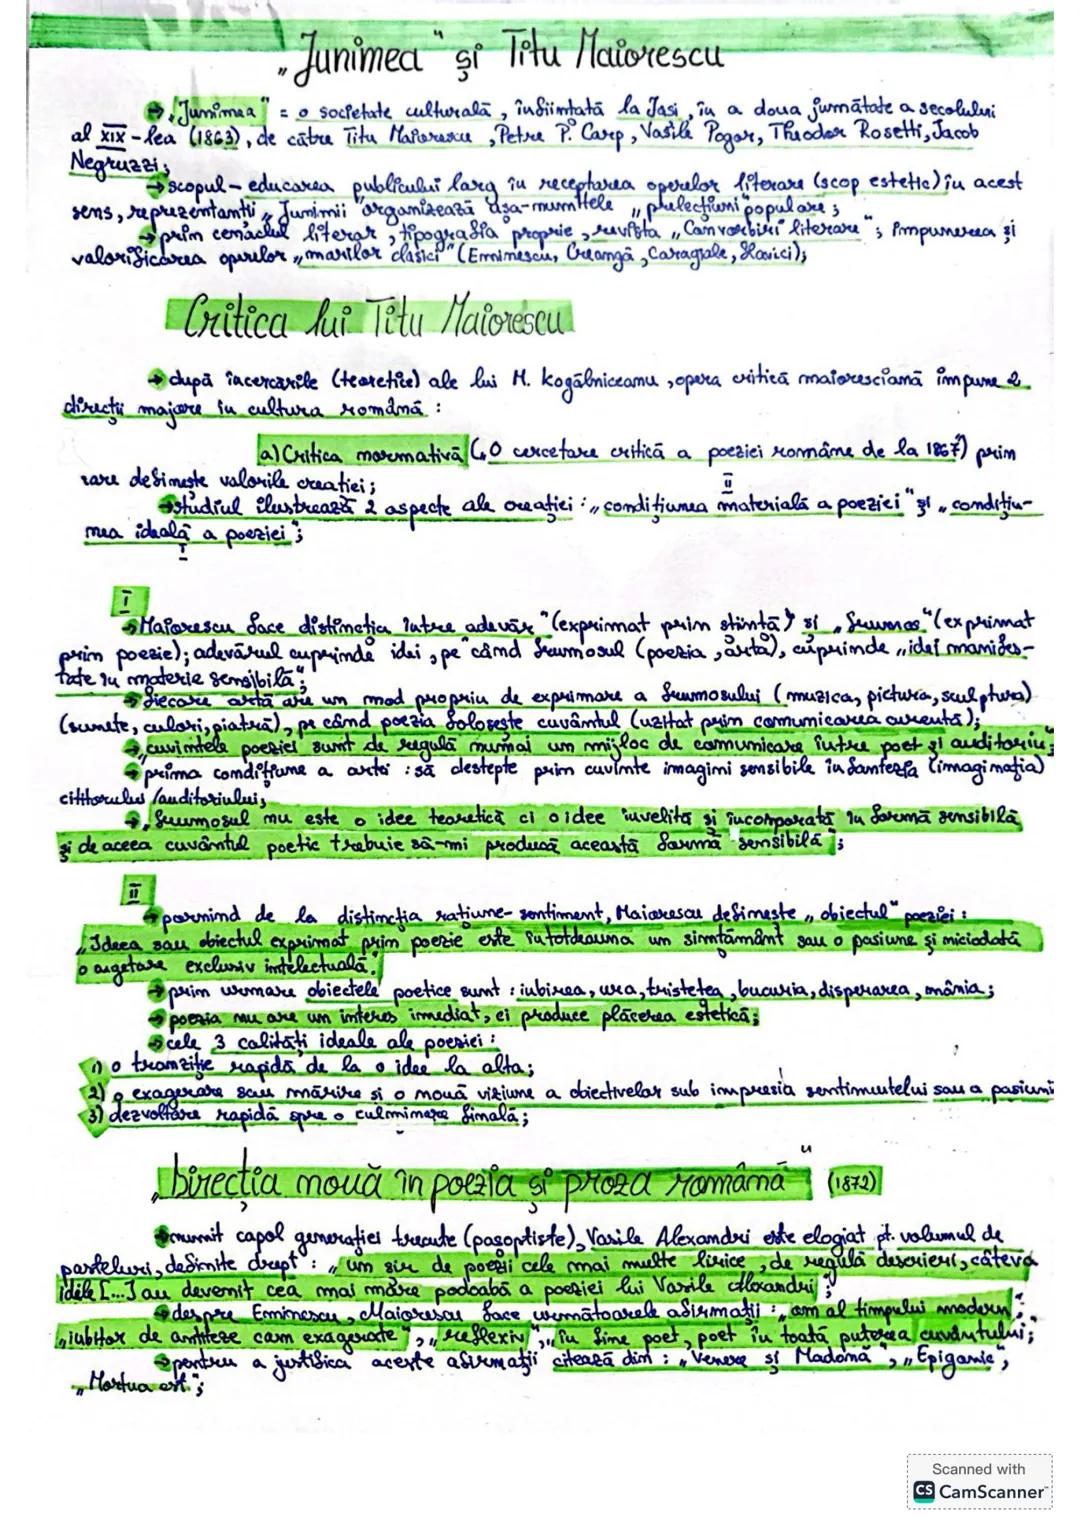 „Junimea" și Titu Maiorescu
→ „Junimea" = o societate culturală, înființată la Iași, în a doua jumătate a secolului
al XIX-lea (1863), de către Titu Maiorescu, Petre P. Carp, Vasile Pogor, Theodor Rosetti, Jacob
Negruzzi;
→ scopul - educarea publicului larg în receptarea operelor literare (scop estetic) în acest
sens, reprezentanții „Junimii" organizează așa-numitele „prelecțiuni" populare;
→ prin cenaclul literar, tipografia proprie, revista „Convorbiri literare"; impunerea și
valorificarea operelor „marilor clasici" (Eminescu, Creangă, Caragiale, Slavici);
Critica lui Titu Maiorescu
→ după încercările (teoretice) ale lui M. Kogălniceanu, opera critică maioresciană impune 2
direcții majore în cultura română:
a) Critica normativă („O cercetare critică a poeziei române de la 1867") prin
care definește valorile creației;
II
→ studiul ilustrează 2 aspecte ale creației: „condițiunea materială a poeziei" și „condițiu-
nea ideală a poeziei";
I
I
→ Maiorescu face distincția între adevăr" (exprimat prin știință) și „frumos" (exprimat
prin poezie); adevărul cuprinde idei, pe când frumosul (poezia, arta), cuprinde „idei manifes-
tate în materie sensibilă";
→ fiecare artă are un mod propriu de exprimare a frumosului (muzica, pictura, sculptura)
(sunete, culori, piatră), pe când poezia folosește cuvântul (uzitat prin comunicarea curentă);
→ „cuvintele poeziei sunt de regulă numai un mijloc de comunicare între poet și auditoriu";
→ prima condițiune a artei: să deștepte prin cuvinte imagini sensibile în fantezia (imaginația)
cititorului/auditoriului;
→ „Frumosul nu este o idee teoretică ci o idee învelită și încorporată în formă sensibilă
și de aceea cuvântul poetic trebuie să-mi producă această formă sensibilă";
II
→ pornind de la distincția rațiune-sentiment, Maiorescu definește „obiectul" poeziei:
„Ideea sau obiectul exprimat prin poezie este întotdeauna un simțământ sau o pasiune și niciodată
o cugetare exclusiv intelectuală."
→ prin urmare obiectele poetice sunt: iubirea, ura, tristețea, bucuria, disperarea, mânia;
→ poezia nu are un interes imediat, ci produce plăcerea estetică;
→ cele 3 calități ideale ale poeziei:
1) o tranziție rapidă de la o idee la alta;
2) o exagerare sau mărire și o nouă viziune a obiectivelor sub impresia sentimentelui sau a pasiunii
3) dezvoltare rapidă spre o culminare finală;
„Direcția nouă în poezia și proza română" (1872)
→ numit capol generației trecute (pașoptiste), Vasile Alexandri este elogiat pt. volumul de
pasteluri, definite drept: „un șir de poezii cele mai multe lirice, de regulă descrieri, câteva
idile [...] au devenit cea mai mare podoabă a poeziei lui Vasile Alexandri";
→ despre Eminescu, Maiorescu face următoarele afirmații: „om al timpului modern";
„iubitor de antiteze cam exagerate", „reflexiv", „în fine poet, poet în toată puterea cuvântului;"
→ pentru a justifica aceste afirmații citează din: „Venere și Madonă", „Epigonii",
„Mortua est";
Scanned with
CS CamScanner